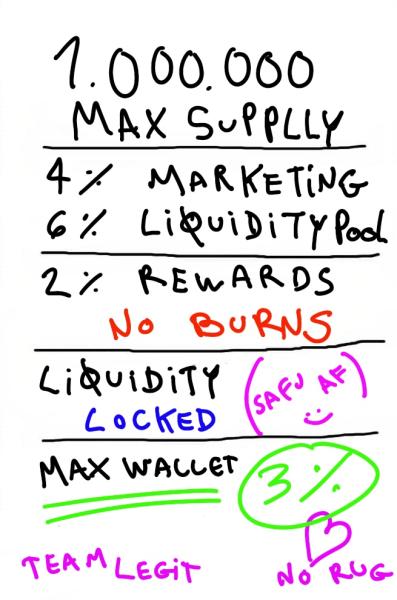 1.000.000
MAX SUPPLLY
4% MARKETiNG
6% LiQUiDiTY Pool
2% REWARDS
No BURNS
LiQUiDiTY
LOCKED
(SAFU AF)
MAX WALLET
3%
TEAM LEGiT
NO RUG